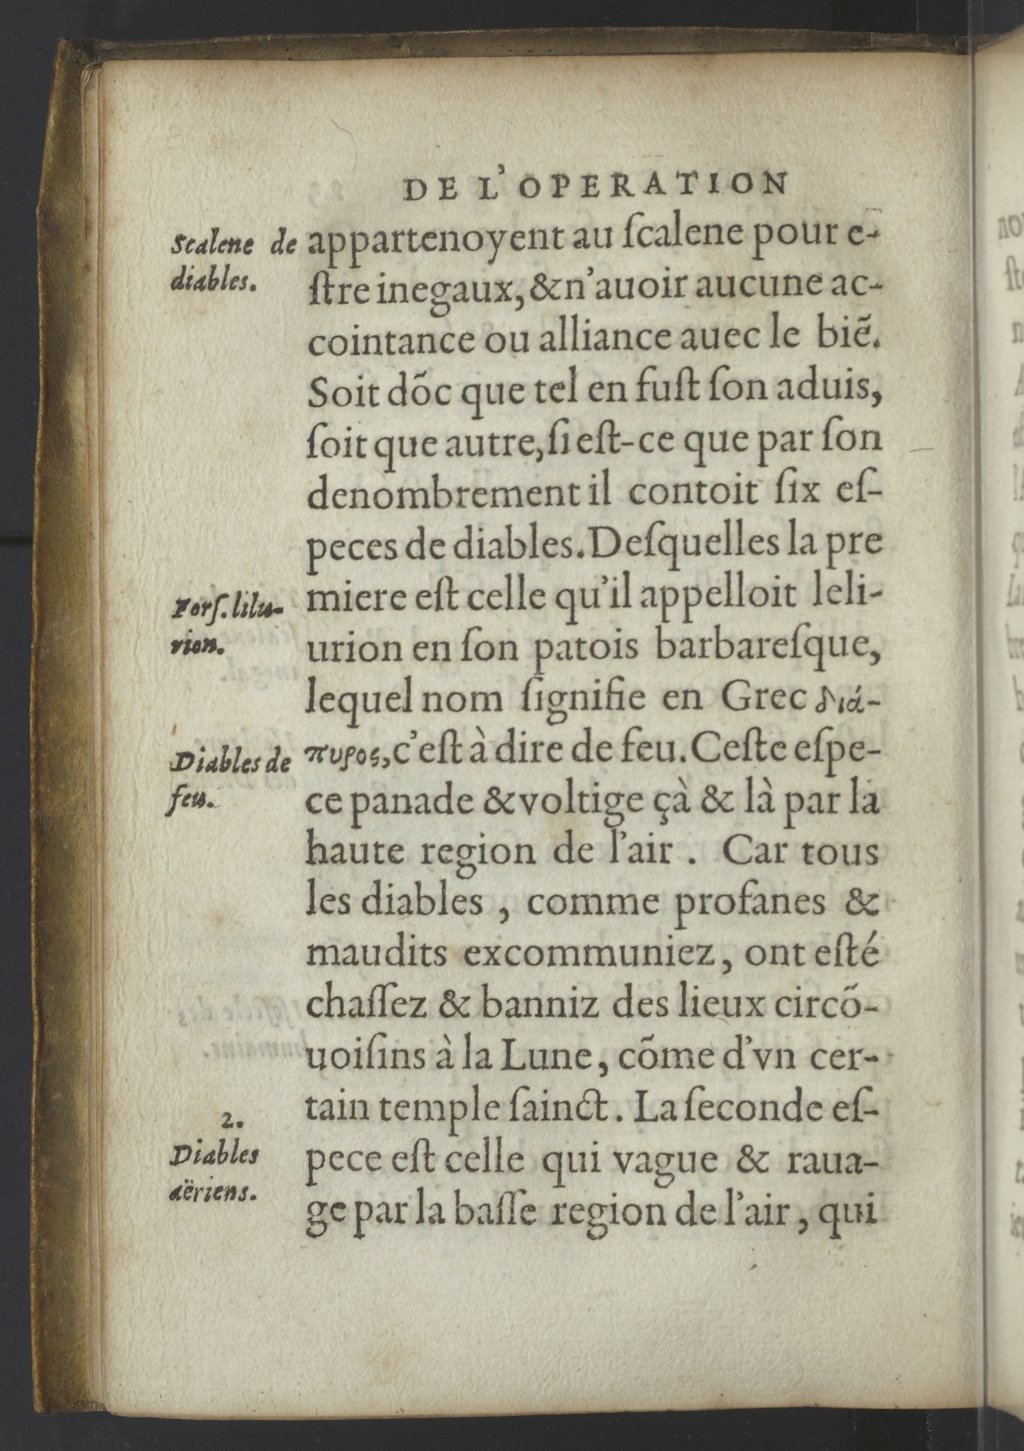 DE L'OPERATION
Scalene de
diables.
appartenoyent au ſcalene pour e-
ſtre inegaux, &n'auoir aucune ac-
cointance ou alliance auec le biẽ.
Soit dõc que tel en fuſt ſon aduis,
ſoit que autre, ſi eſt-ce que par ſon
denombrement il contoit ſix eſ-
peces de diables. Deſquelles la pre
Forſ. lilu-
rion.
miere eſt celle qu'il appelloit leli-
urion en ſon patois barbareſque,
lequel nom ſignifie en Grec διά-
Diables de
feu.
πυρος, c'eſt à dire de feu. Ceſte eſpe-
ce panade & voltige çà & là par la
haute region de l'air . Car tous
les diables , comme profanes &
maudits excommuniez, ont eſté
chaſſez & banniz des lieux circõ-
uoiſins à la Lune, cõme d'vn cer-
tain temple ſainct. La ſeconde eſ-
2.
Diables
aëriens.
pece eſt celle qui vague & raua-
ge par la baſſe region de l'air, qui